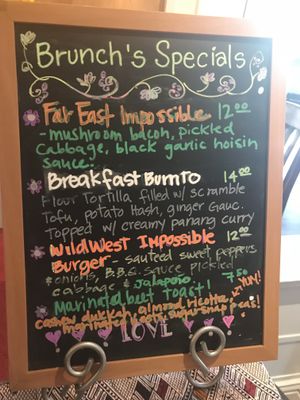 Brunch's Specials
Far East Impossible 12.00
- mushroom bacon, pickled
cabbage, black garlic hoisin
sauce.
Breakfast Burrito 14.00
Flour Tortilla filled w/ scramble
Tofu, potato Hash, ginger Guac.
Topped w/ creamy panang curry
Wild West Impossible 12.00
Burger - sauteed sweet peppers
& onions, B.B.Q. sauce pickled
cabbage & Jalapeño.
Marinated beet toast! 7.50
cashew dukkah, almond ricotta, YUM!
marinated corn, sugar snap peas!
LOVE